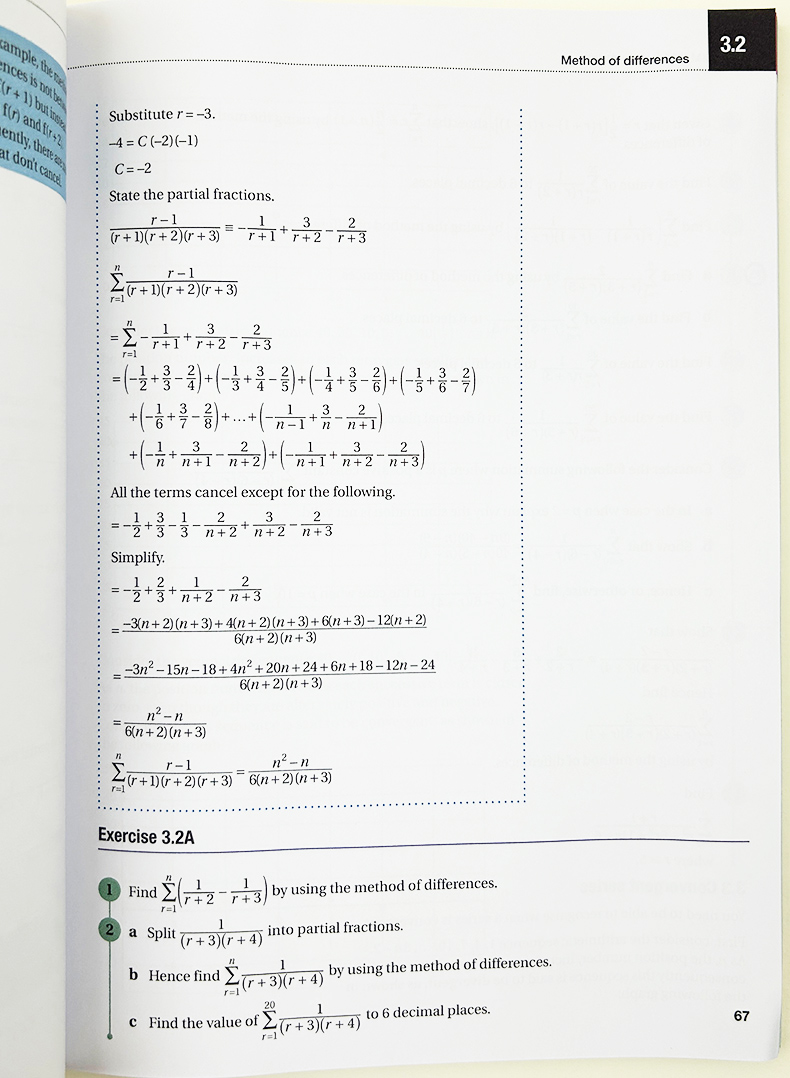 xample, the
ences is not
(r + 1) but
f(r) and f(r + 2
ently, there
at don't cancel.
3.2
Method of differences
Substitute r = –3.
–4 = C (–2)(–1)
C = –2
State the partial fractions.
(r – 1)/((r + 1)(r + 2)(r + 3)) ≡ –1/(r + 1) + 3/(r + 2) – 2/(r + 3)
∑_{r=1}^{n} (r – 1)/((r + 1)(r + 2)(r + 3))
= ∑_{r=1}^{n} –1/(r + 1) + 3/(r + 2) – 2/(r + 3)
= (–1/2 + 3/3 – 2/4) + (–1/3 + 3/4 – 2/5) + (–1/4 + 3/5 – 2/6) + (–1/5 + 3/6 – 2/7)
+ (–1/6 + 3/7 – 2/8) + ... + (–1/(n – 1) + 3/n – 2/(n + 1))
+ (–1/n + 3/(n + 1) – 2/(n + 2)) + (–1/(n + 1) + 3/(n + 2) – 2/(n + 3))
All the terms cancel except for the following.
= –1/2 + 3/3 – 1/3 – 2/(n + 2) + 3/(n + 2) – 2/(n + 3)
Simplify.
= –1/2 + 2/3 + 1/(n + 2) – 2/(n + 3)
= (–3(n + 2)(n + 3) + 4(n + 2)(n + 3) + 6(n + 3) – 12(n + 2))/(6(n + 2)(n + 3))
= (–3n² – 15n – 18 + 4n² + 20n + 24 + 6n + 18 – 12n – 24)/(6(n + 2)(n + 3))
= (n² – n)/(6(n + 2)(n + 3))
∑_{r=1}^{n} (r – 1)/((r + 1)(r + 2)(r + 3)) = (n² – n)/(6(n + 2)(n + 3))
Exercise 3.2A
1 Find ∑_{r=1}^{n} (1/(r + 2) – 1/(r + 3)) by using the method of differences.
2 a Split 1/((r + 3)(r + 4)) into partial fractions.
b Hence find ∑_{r=1}^{n} 1/((r + 3)(r + 4)) by using the method of differences.
c Find the value of ∑_{r=1}^{20} 1/((r + 3)(r + 4)) to 6 decimal places.
67